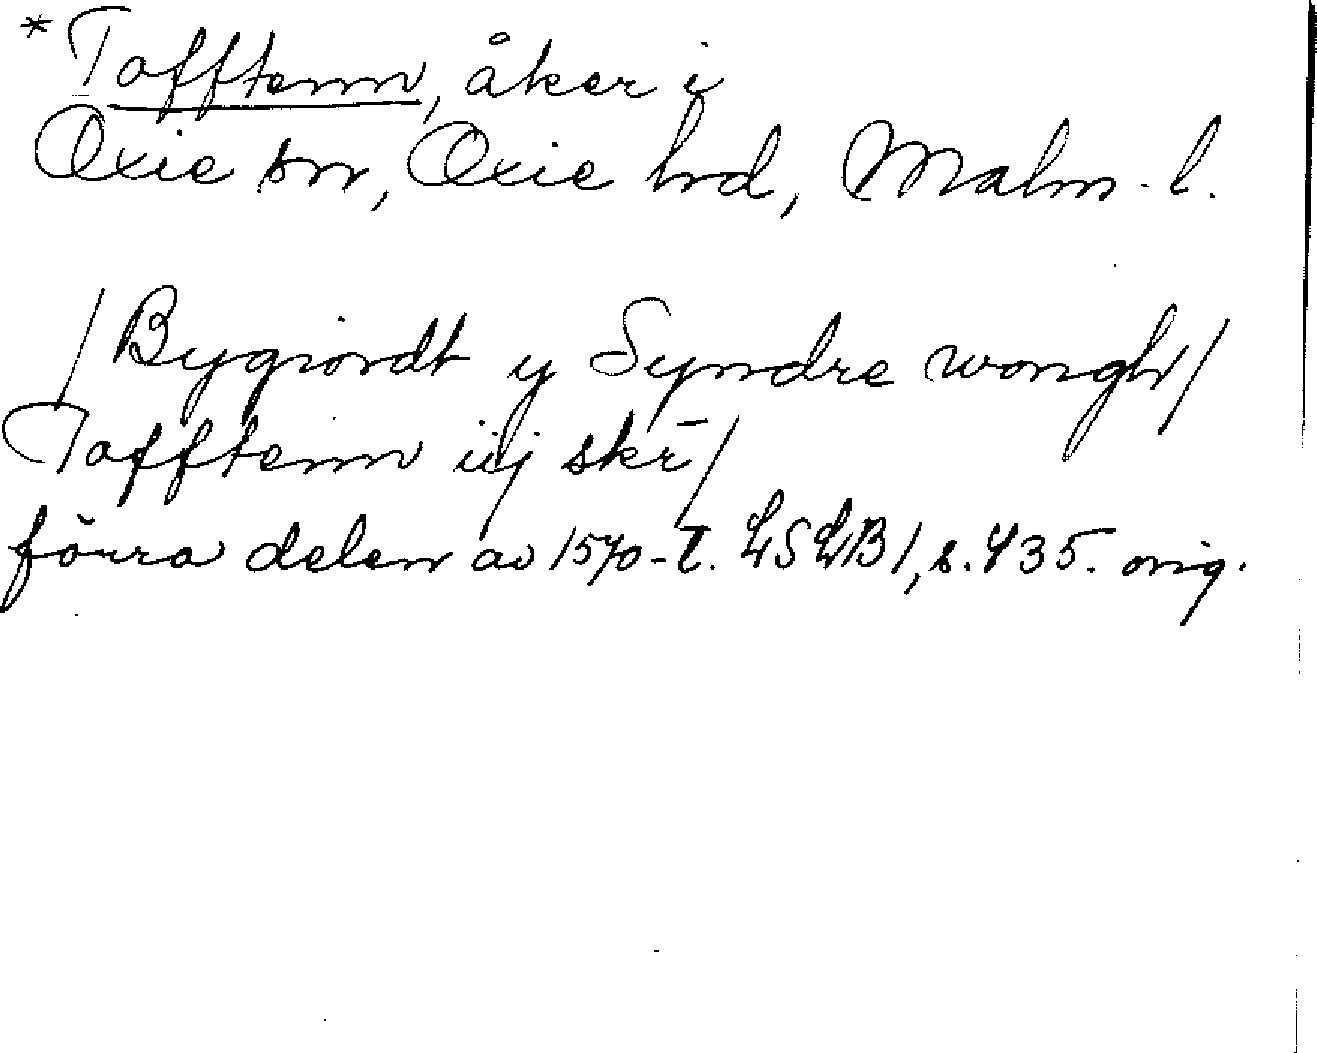 *Tofftenn, åker i
Oxie sn, Oxie hd, Malm. l.
/Bygiordt y Syndre wongh/
Tofftenn iij skr̄/
förra delen av 1570-t. LSLB 1, s. 435. orig.